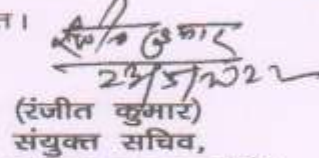 त।
रंजीत कुमार
23/5/2022
(रंजीत कुमार)
संयुक्त सचिव,